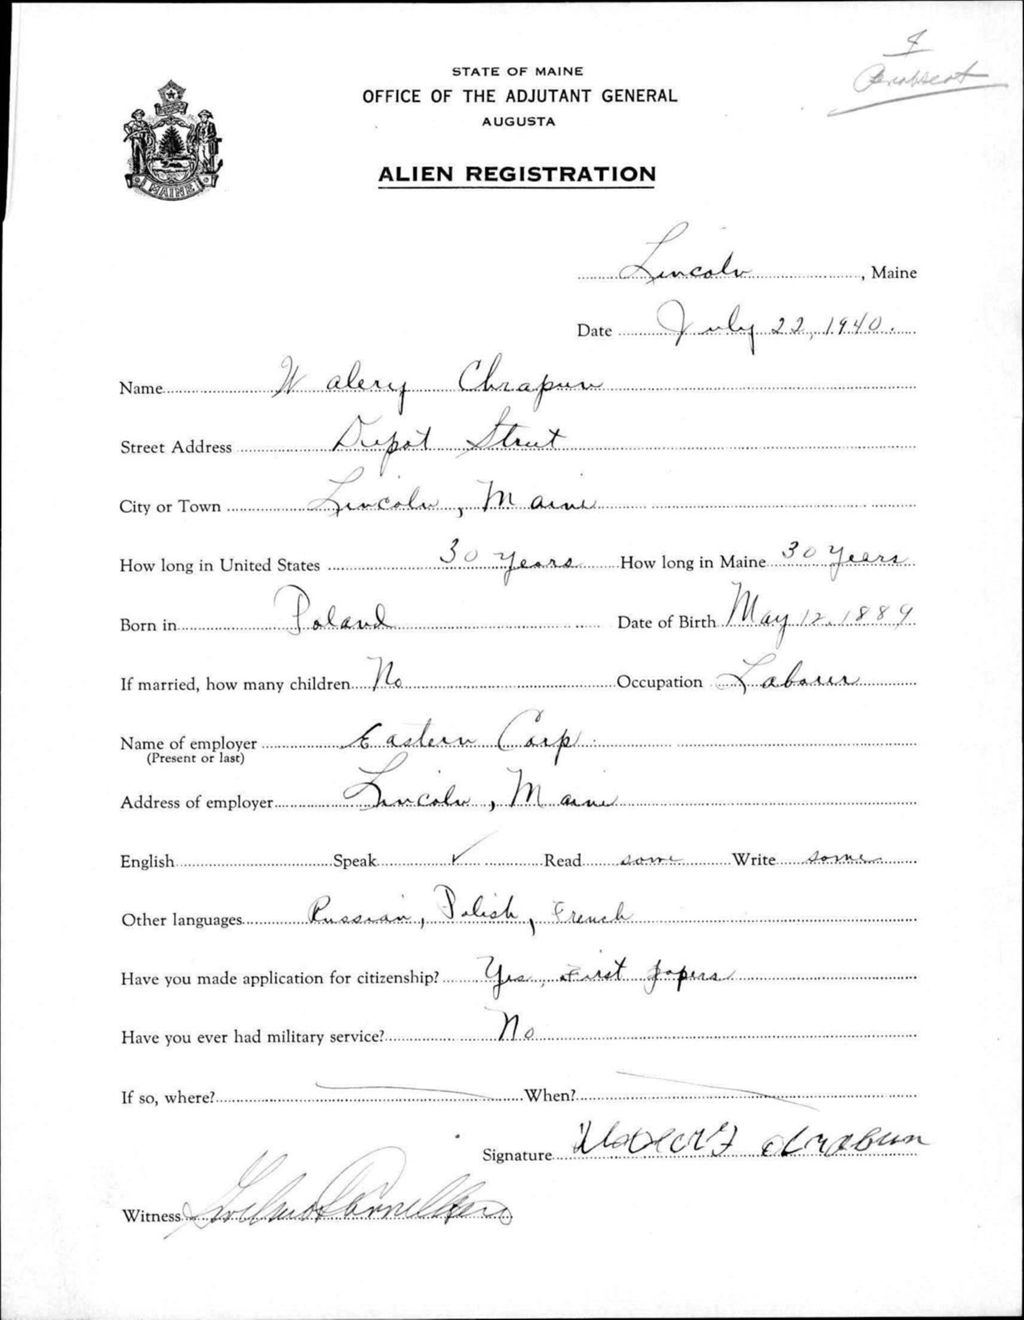 STATE OF MAINE
OFFICE OF THE ADJUTANT GENERAL
AUGUSTA
ALIEN REGISTRATION
MAINE
Lincoln, Maine
Date July 22, 1940.
Name Walery Chrapun
Street Address Depot Street
City or Town Lincoln, Maine
How long in United States 30 years How long in Maine 30 years
Born in Poland Date of Birth May 12, 1889
If married, how many children No Occupation Laborer
Name of employer Eastern Corp.
(Present or last)
Address of employer Lincoln, Maine
English Speak ✓ Read some Write some
Other languages Russian, Polish, French
Have you made application for citizenship? Yes, First papers
Have you ever had military service? No
If so, where? When?
Signature
Witness